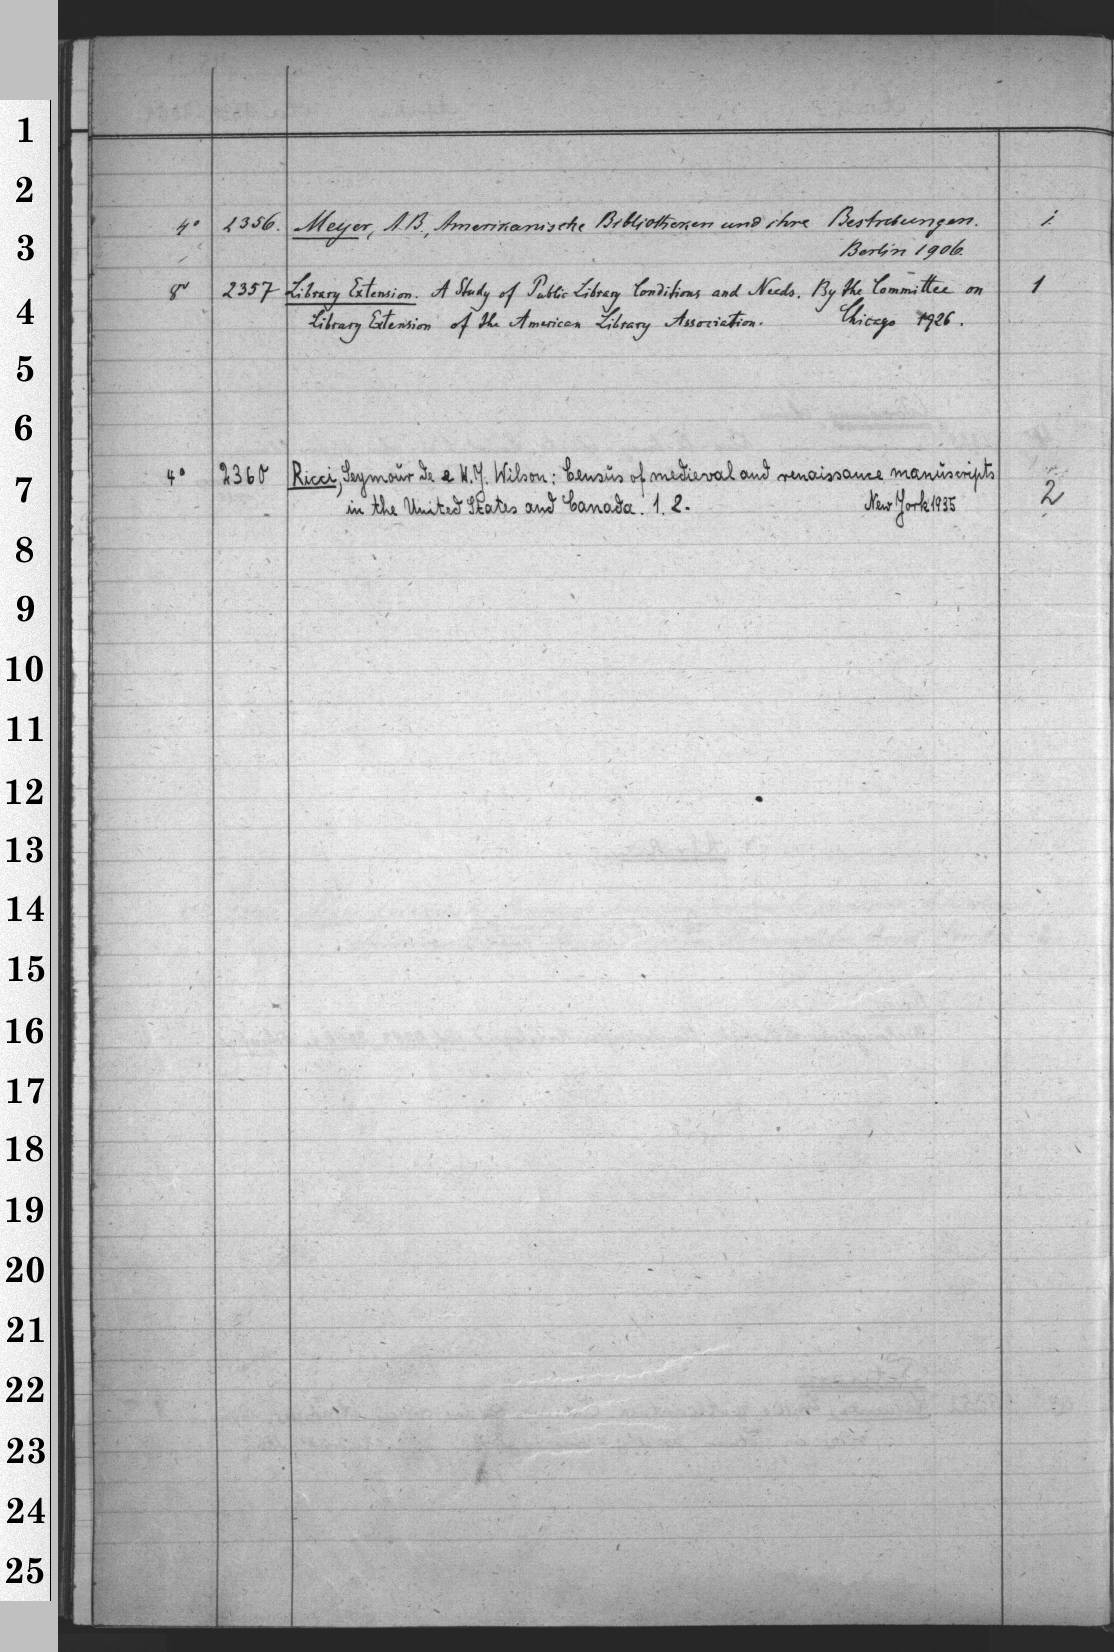 1
2
4° 2356. Meyer, A.B., Amerikanische Bibliotheken und ihre Bestrebungen. 1.
3
Berlin 1906.
8° 2357 Library Extension. A Study of Public Library Conditions and Needs. By the Committee on 1
4
Library Extension of the American Library Association. Chicago 1926.
5
6
4° 2360 Ricci, Seymour de & W.J. Wilson: Census of medieval and renaissance manuscripts
7
2
in the United States and Canada. 1. 2. New York 1935
8
9
10
11
12
13
14
15
16
17
18
19
20
21
22
23
24
25